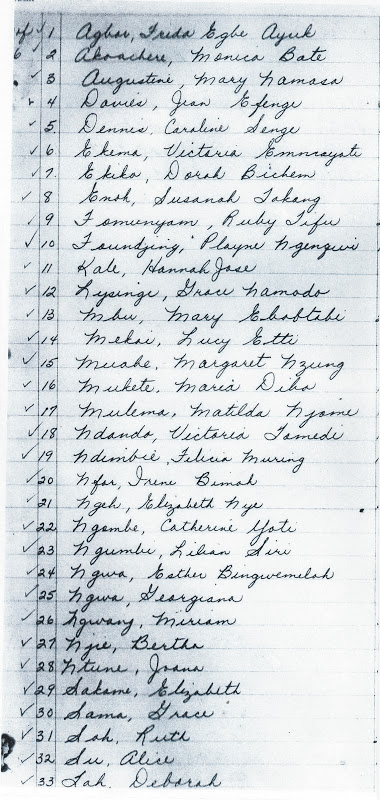 1 Agbor, Frida Egbe Ayuk
2 Akoachere, Monica Bate
3 Augustine, Mary Namasa
4 Davies, Jean Efenge
5 Dennis, Caroline Senge
6 Ekema, Victoria
7 Ekiko, Dorah Bichem
8 Enoh, Susanah Takang
9 Fomunyam, Ruby Tifu
10 Foundjing, Playne
11 Kale, Hannah Jose
12 Lysinge, Grace Namodo
13 Mbu, Mary Ebobtabi
14 Mekai, Lucy Etti
15 Muabe, Margaret Nzung
16 Mukete, Maria Diba
17 Mulema, Matilda Njome
18 Ndando, Victoria Tamedi
19 Ndimbie, Felicia Muring
20 Nfor, Irene Bimah
21 Ngeh, Elizabeth Nye
22 Ngombe, Catherine Yoti
23 Ngumbu, Lilian Siri
24 Ngwa, Esther Bingwemelah
25 Ngwa, Georgiana
26 Ngwang, Miriam
27 Njie, Bertha
28 Ntune, Joana
29 Sakame, Elizabeth
30 Sama, Grace
31 Soh, Ruth
32 Su, Alice
33 Tah, Deborah